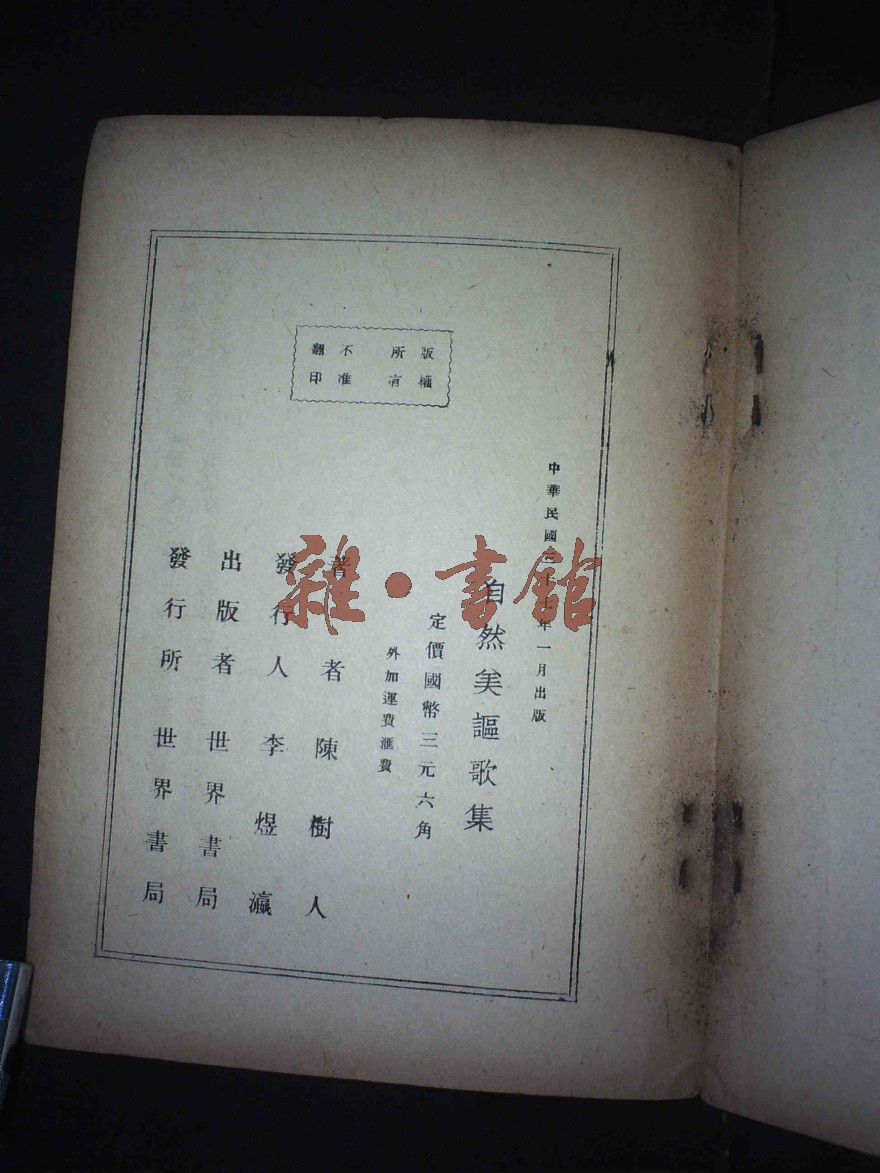 版權所有
不准翻印
中華民國三十年一月出版
自然美謳歌集
定價國幣三元六角
外加運費滙費
著者 陳樹人
發行人 李煜瀛
出版者 世界書局
發行所 世界書局
雜·書館